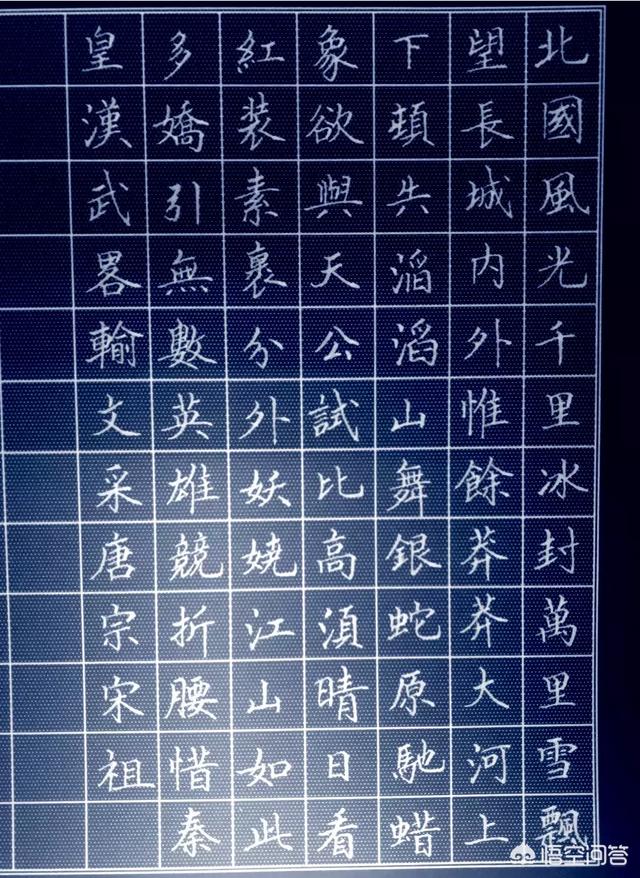 北國風光千里冰封萬里雪飄
望長城内外惟餘莽莽大河上
下頓失滔滔山舞銀蛇原馳蜡
象欲與天公試比高湏晴日看
紅装素裹分外妖嬈江山如此
多嬌引無數英雄競折腰惜秦
皇漢武畧輸文采唐宗宋祖
悟空问答